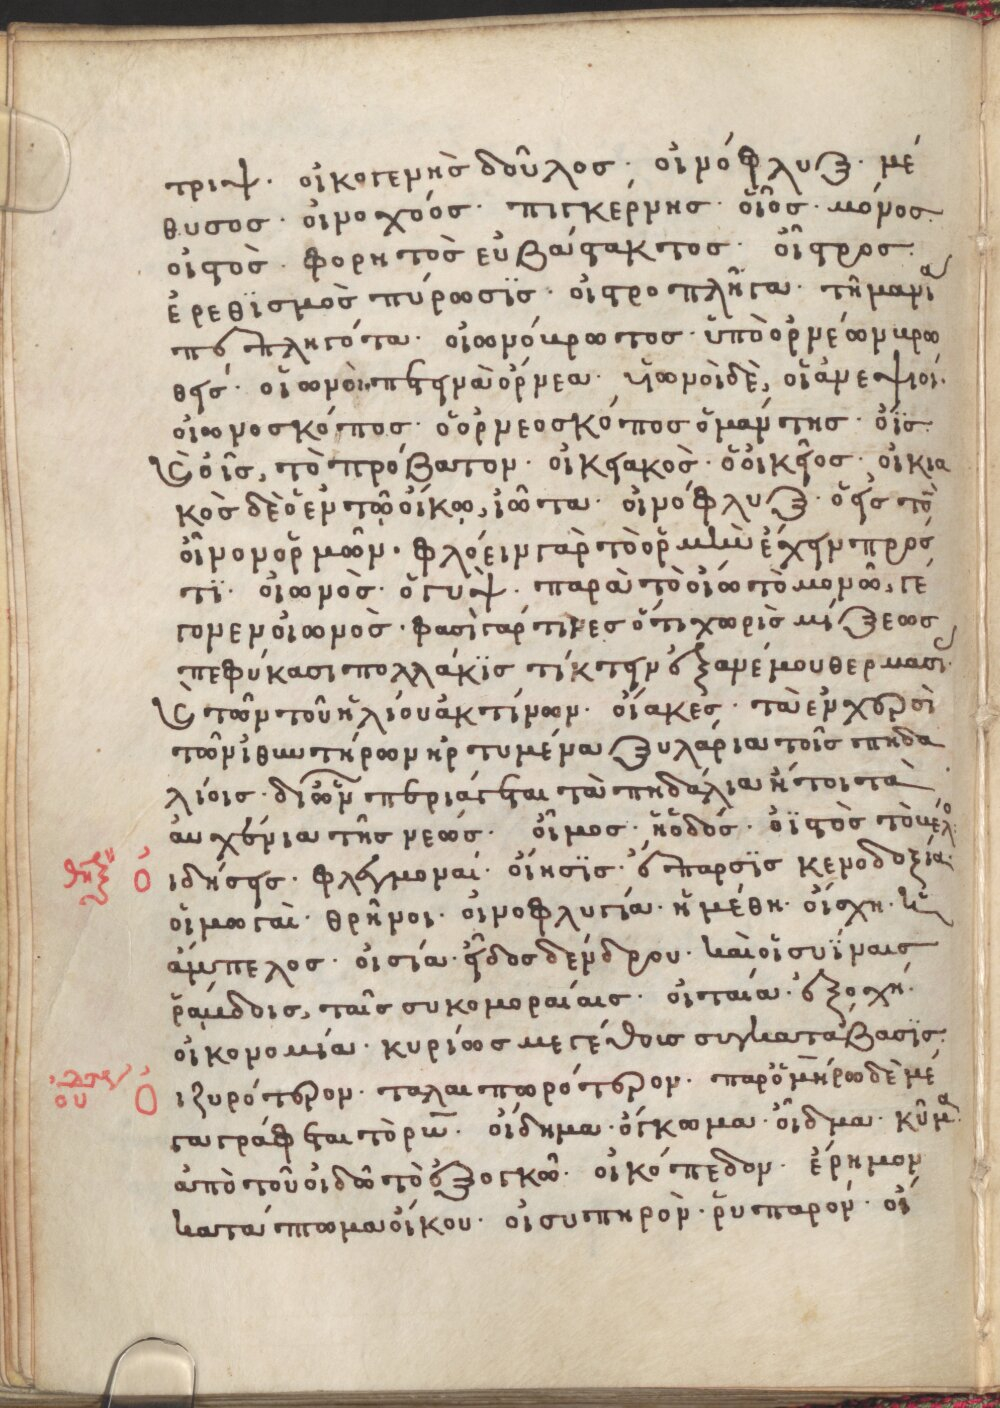 τριψ. οἰκογενὴς δοῦλος. οἰνόφλυξ. μέ
θυσος. οἰνοχόος. πιγκέρνης. οἶος. μόνος.
οἰστὸς. φορητὸς εὐβάστακτος. οἶστρος.
ἐρεθϊσμὸς πύρωσϊς. οἰστροπλῆγα. τῆ μανία
πεπληγότα. οἰωνόκρωστος. ὑπὸ ὀρνέων κρω
θείς. οἰωνοὶ πετεινὰ ὄρνεα. υἱωνοὶ δὲ, οἱ ἀνεψιοί.
οἰωνοσκόπος. ὁ ὀρνεοσκόπος ὁ μάντης. οἶς.
καὶ ὄϊς, τὸ πρόβατον. οἰκειακὸς. ὁ οἰκεῖος. οἰκια
κὸς δὲ ὁ ἐν τῶ οἴκω, ἰῶτα. οἰνόφλυξ. ὁ εἰς τὸν
οἶνον ὁρμῶν. φλύειν γὰρ τὸ ὁρμὴν ἔχειν πρός
τϊ. οἰωνὸς. ὁ γὺψ. παρὰ τὸ οἴω τὸ μονῶ, γέ
γονεν οἰωνὸς. φασὶ γάρ τινες ὅτι χωρὶς μίξεως
πεφύκασι πολλάκϊς τίκτειν ἐξ ἀνέμου θερμασίας
καὶ τῶν τοῦ ἡλίου ἀκτίνων. οἴακες. τὰ ἐν χερσὶ
τῶν ἰθυντήρων ἠρτυμένα ξυλάρια τοῖς πηδα
λίοις. δι' ὧν περιάγεται τὰ πηδάλια ἤτοι τὰ
αὐχένια τῆς νεώς. οἶμος. ἡ ὁδός. οἰστὸς τὸ βέλος.
οἰδήσεις. φλεγμοναί. οἴησϊς. ἔπαρσϊς κενοδοξία.
οἰμωγαὶ. θρῆνοι. οἰνοφλυγία. ἡ μέθη. οἴσχη. ἡ
ἄμπελος. οἰσία. εἶδος δένδρου. καὶ οἰσυΐναις
ῥάβδοις, ταῖς συκομοραίαις. οἰταία. ἐξοχή.
οἰκονομία. κυρίως μεγέθους συγκατάβασϊς.
οἰζυρότερον. ταλαιπωρότερον. παρ' ὁμήρω δὲ μέ
γα γράφεται τὸ ρω. οἴδημα. ὄγκωμα. οἶδμα. κῦμα.
ἀπὸ τοῦ οἰδῶ τὸ ἐξογκῶ. οἰκόπεδον. ἔρημον
κατάπτωμα οἴκου. οἰσυπηρὸν. ῥυπαρόν. οἰ